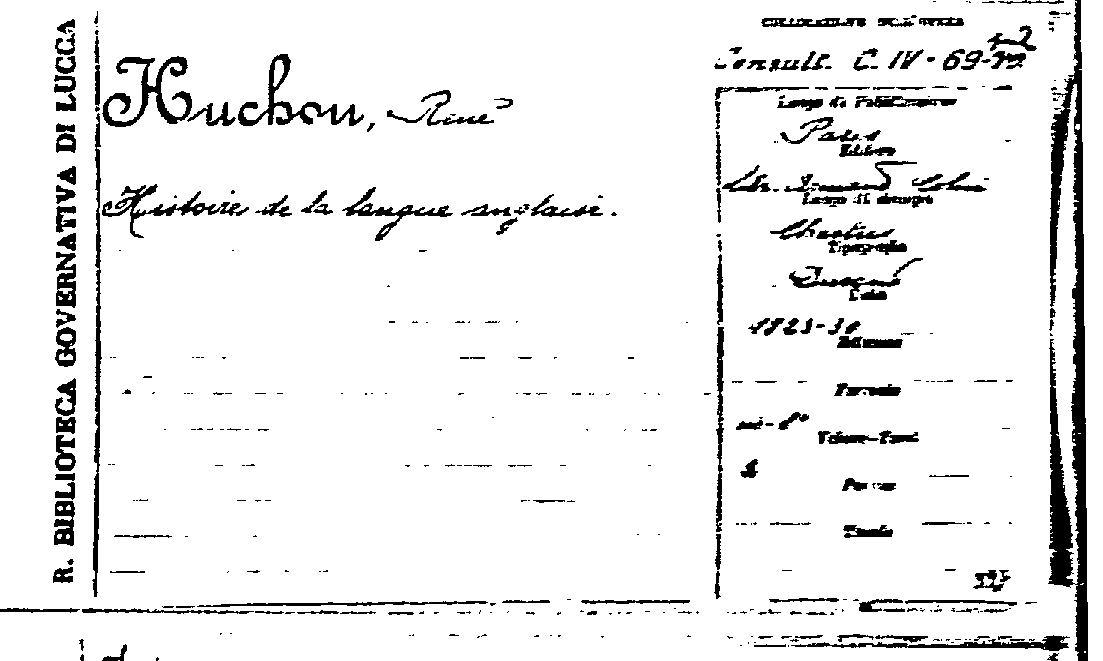 R. BIBLIOTECA GOVERNATIVA DI LUCCA
COLLOCAZIONE DELL'OPERA
Consult. C. IV - 69-
Huchon, René
Luogo di Pubblicazione
Paris
Editore
Libr. Armand Colin
Luogo di stampa
Histoire de la langue anglaise.
Chartres
Tipografia
Durand
Data
1923-30
Edizione
Formato
in-8°
Volume-Tomi
2
Pagine
Tavole